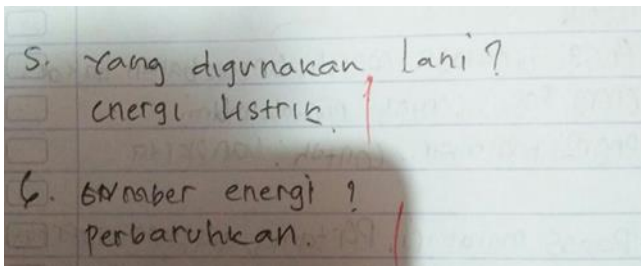 5. Yang digunakan Lani?
energi listrik
6. sumber energi?
perbaruhkan.